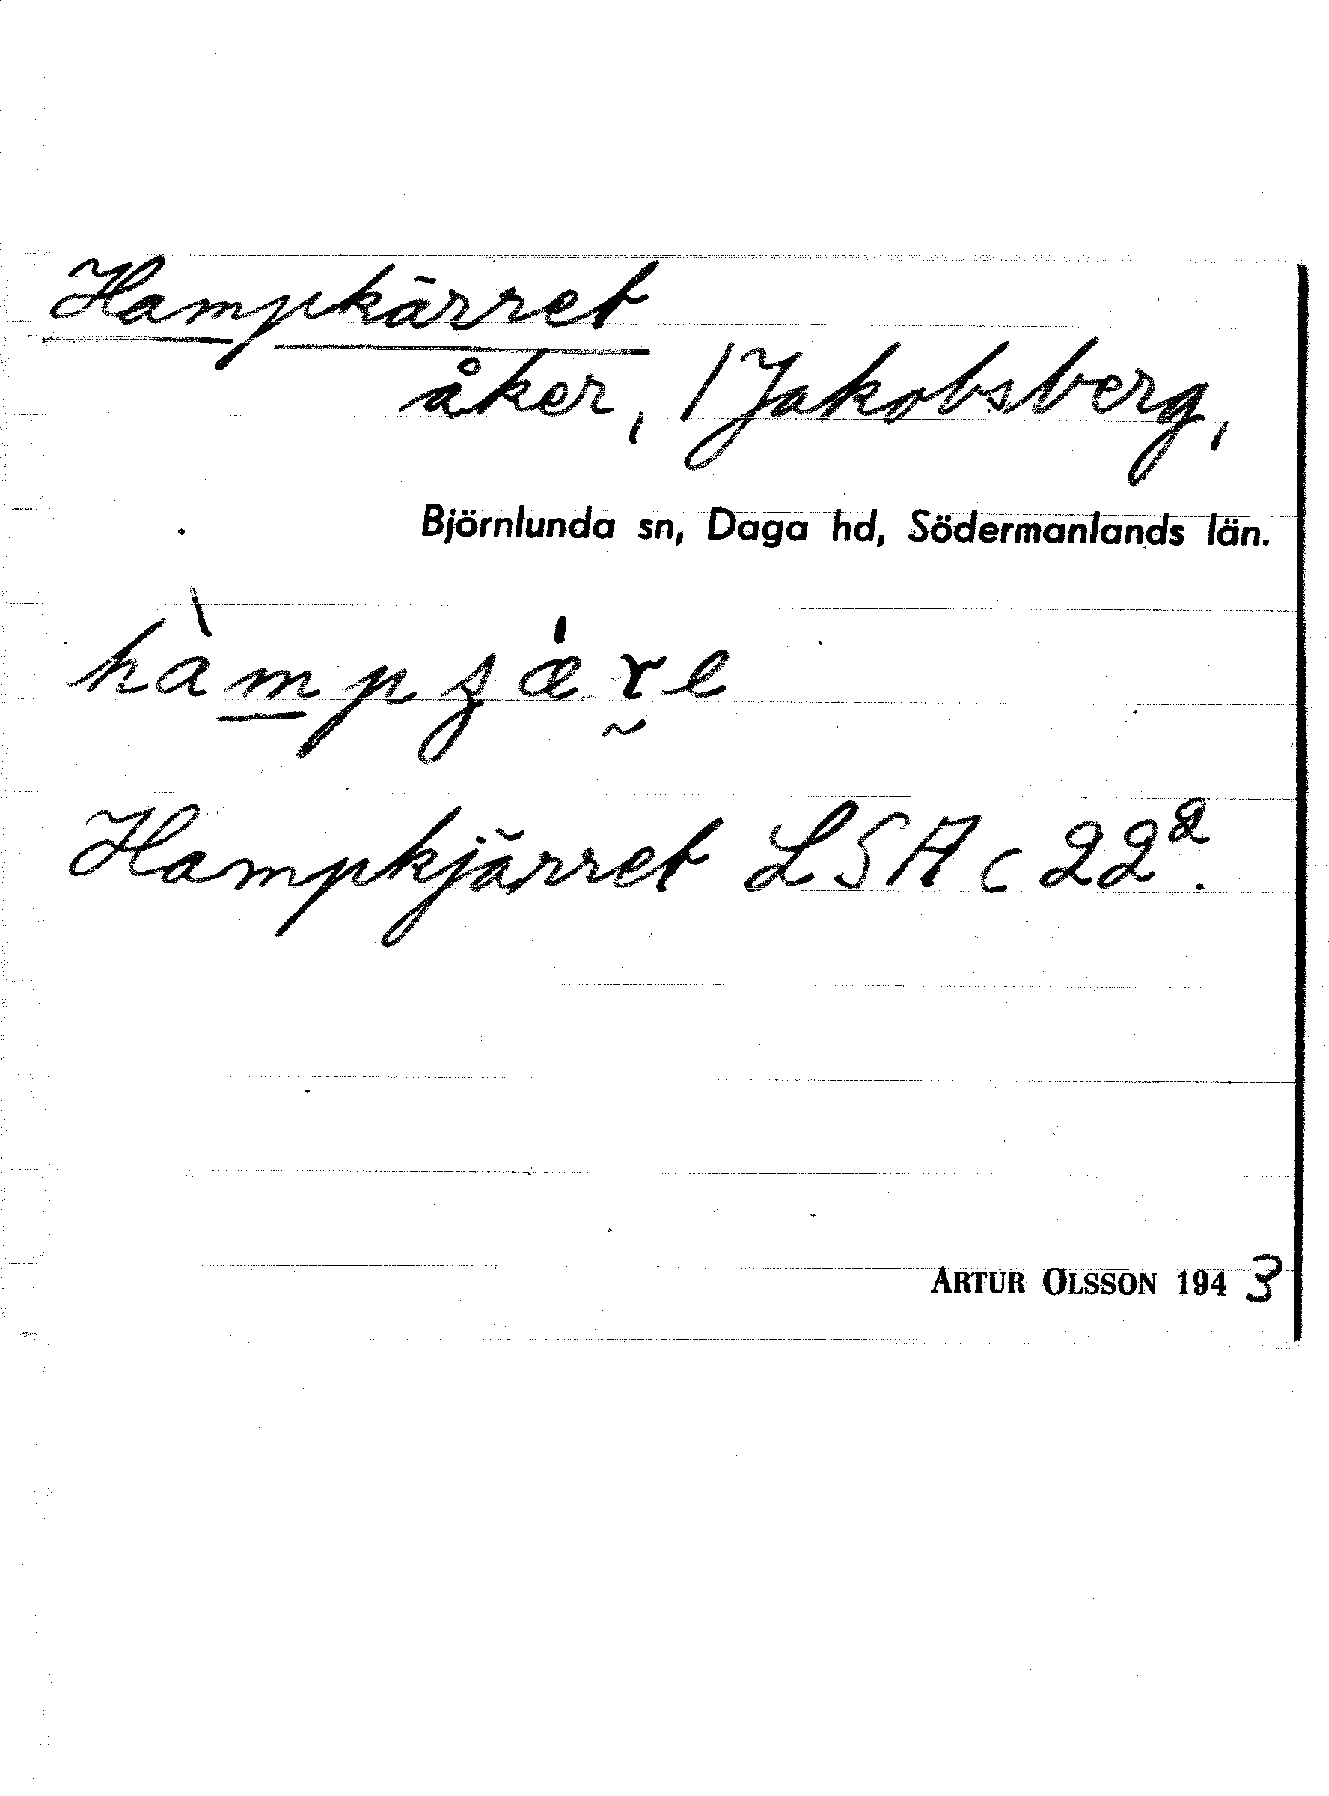 Hampkärret
åker, 1 Jakobsberg,
Björnlunda sn, Daga hd, Södermanlands län.
Hampkjärret LSA c 22².
ARTUR OLSSON 1943